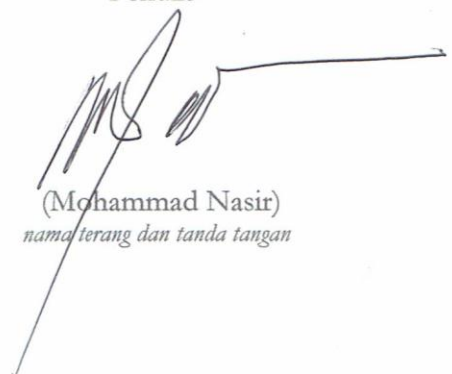 (Mohammad Nasir)
nama terang dan tanda tangan